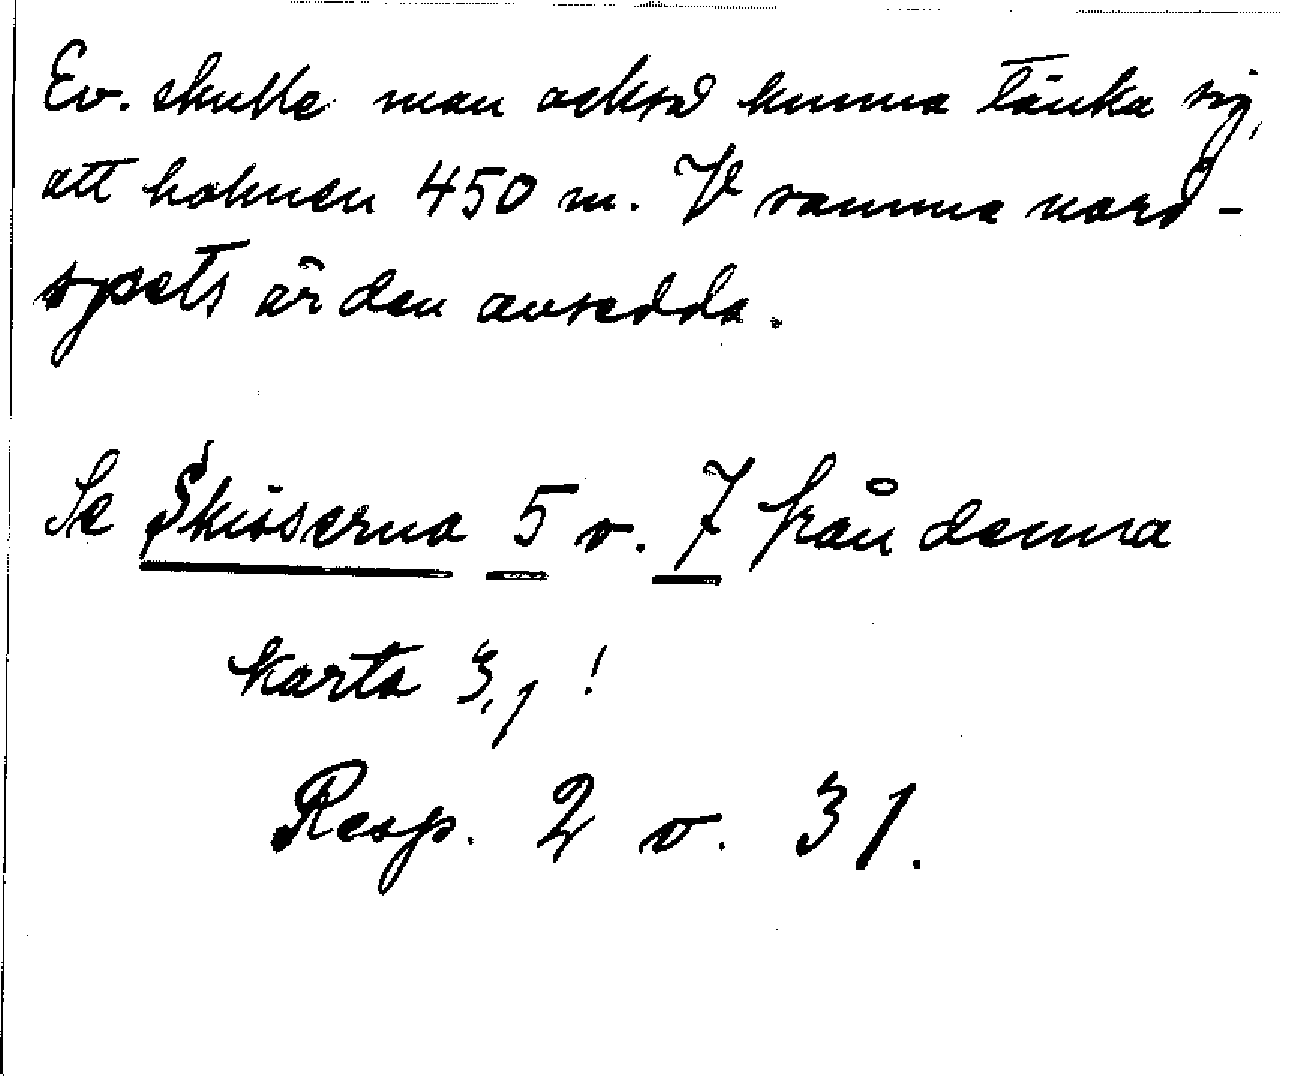 Ev. skulle man också kunna tänka sig,
att holmen 450 m. V samma nord-
spets är den avsedda.
Se Skisserna 5 o. 7 från denna
karta 3,1 !
Resp. 2 o. 31.